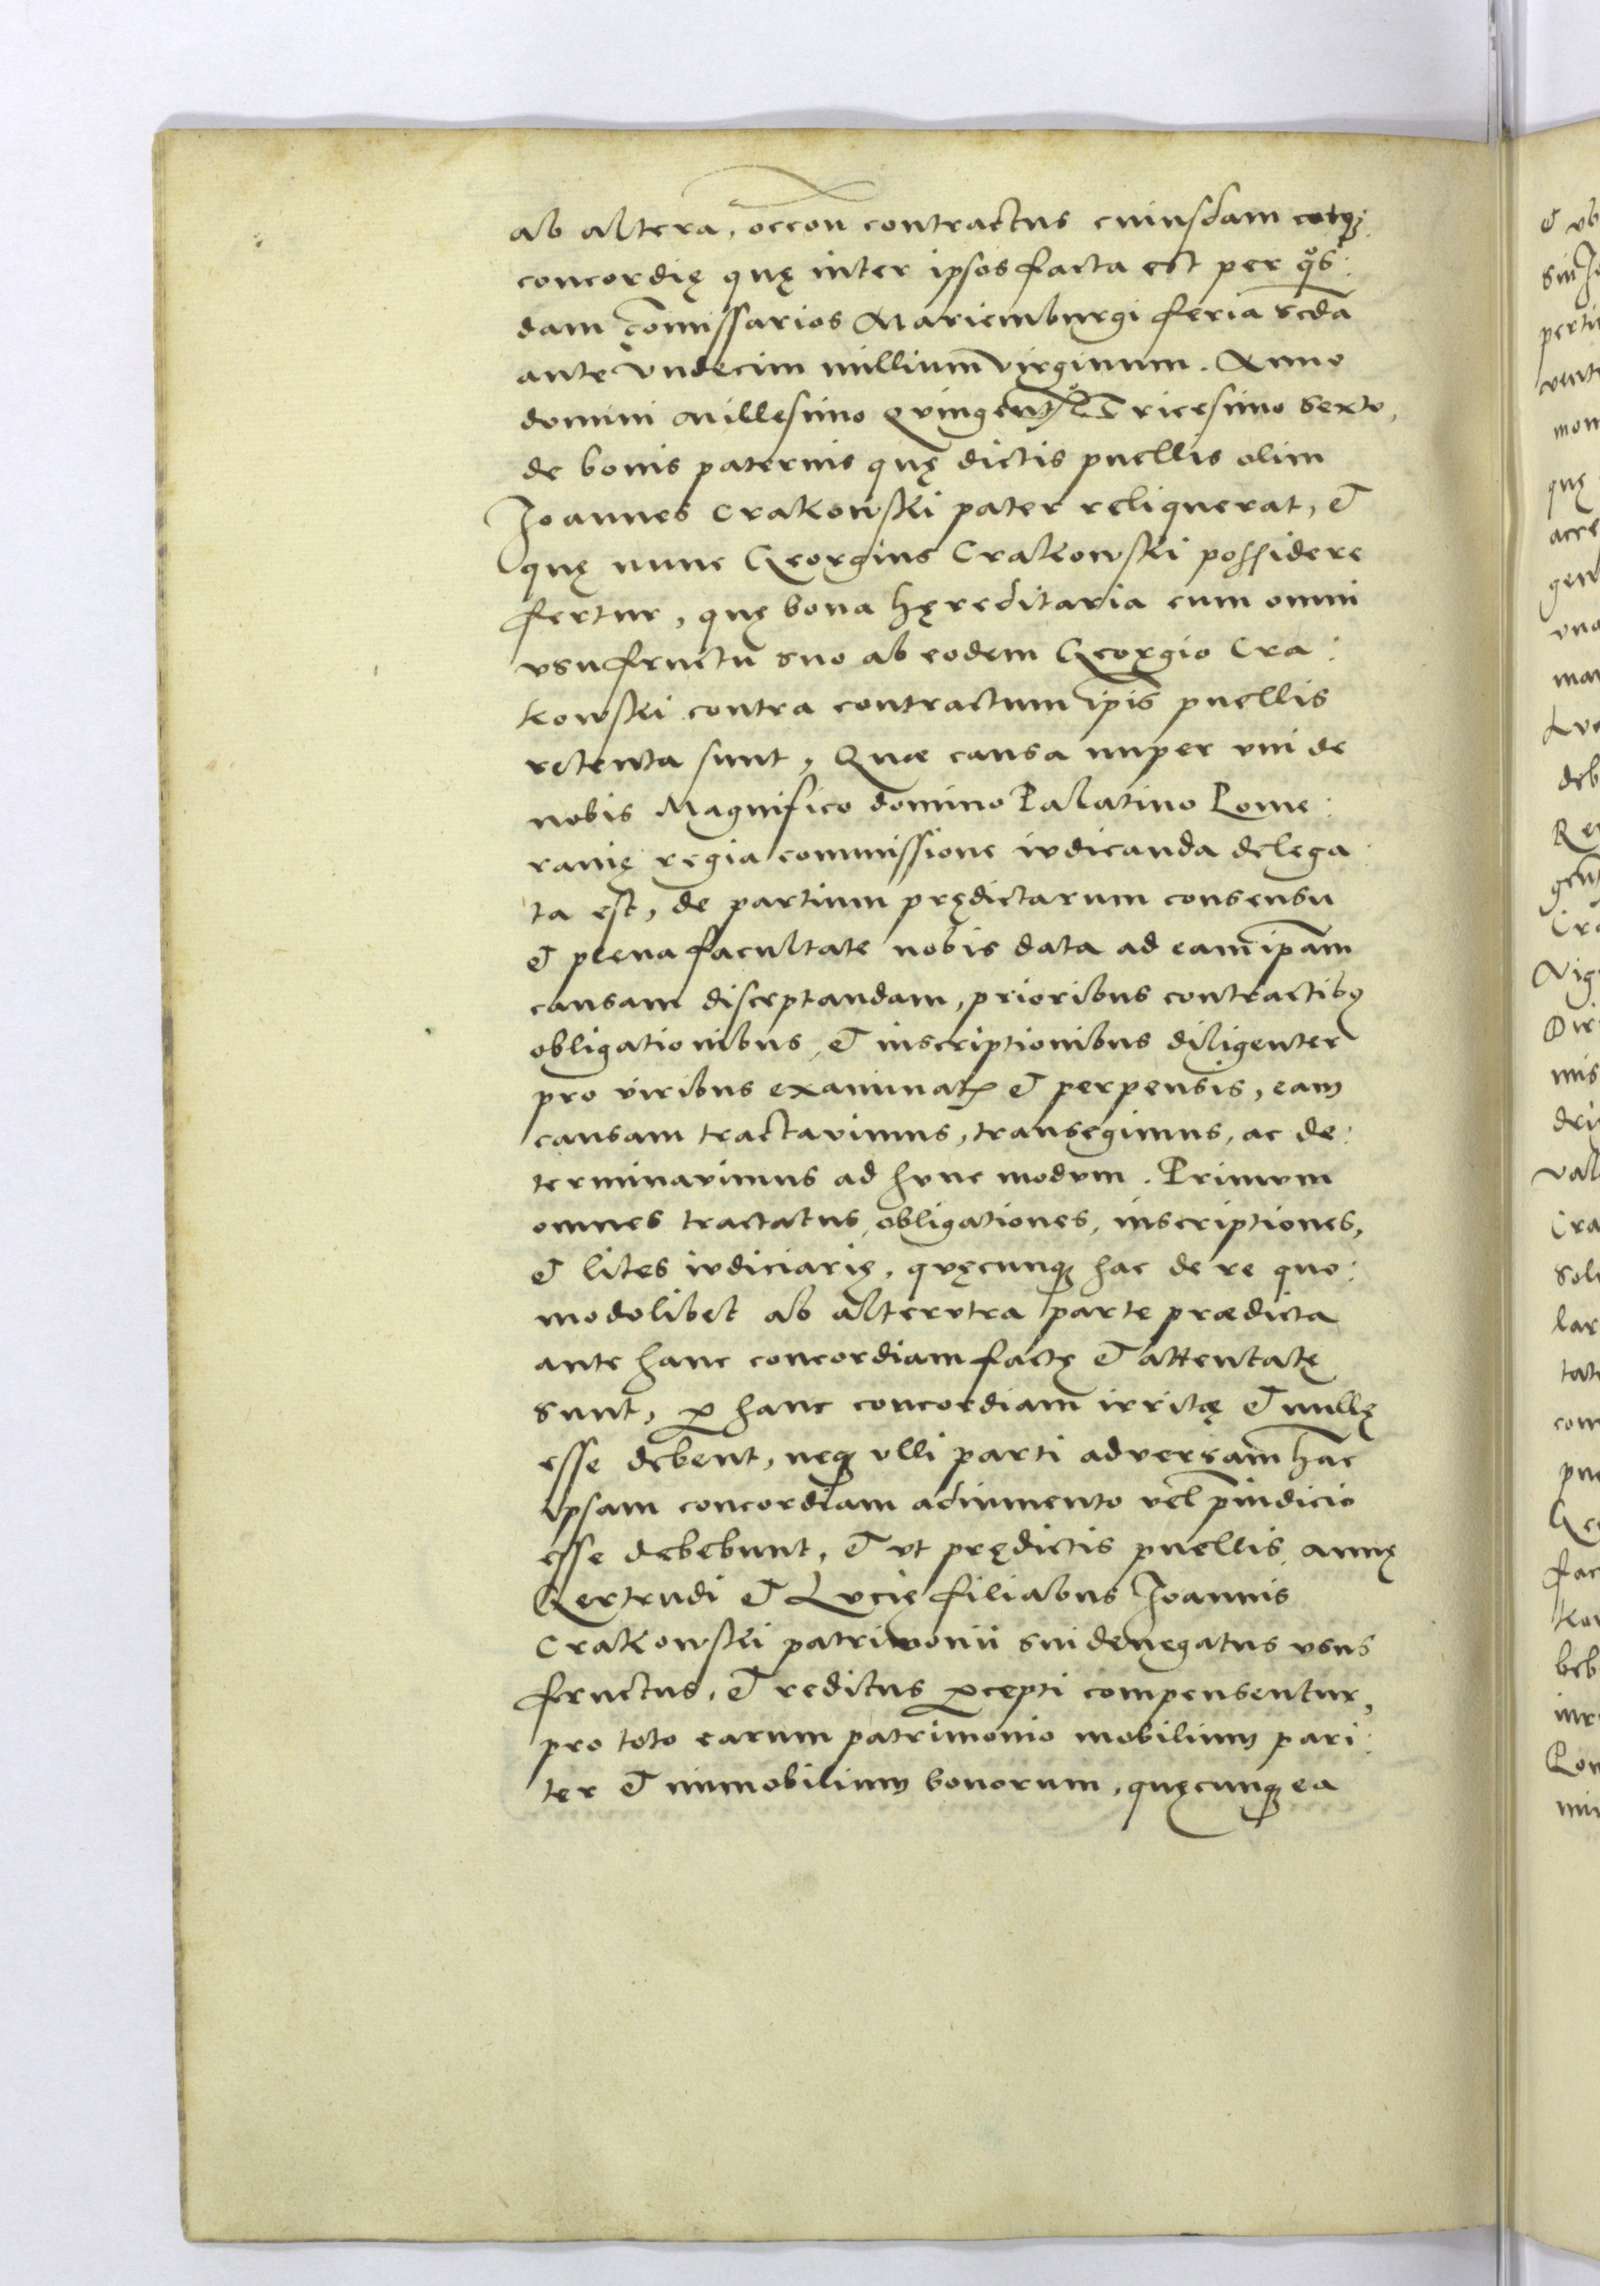 ab altera, occon contractus cuiusdam eotq;
concordię quę inter ipsos facta est per qos:
dam comissarios Mariemburgi feria scda
ante Vndecim millium virginum. Anno
domini Millesimo Quingento Tricesimo Sexto,
de bonis paternis quę dictis puellis olim
Joannes Crakowski pater reliquerat, et
quę nunc Georgius Crakowski possidere
fertur, quę bona hęreditaria cum omni
vsufructu suo ab eodem Georgio Cra:
kowski contra contractum ipis puellis
retenta sunt, Quæ causa nuper vni de
nobis Magnifico domino Palatino Pome:
ranię regia commissione iudicanda delega:
ta est, de partium prędictarum consensu
et plena facultate nobis data ad eam ipam
causam disceptandam, prioribus contractibq
obligationibus, et inscriptionibus diligenter
pro viribus examinatis et perpensis, eam
causam tractauimus, transegimus, ac de:
terminauimus ad hunc modum. Primum
omnes tractatus, obligationes, inscriptiones,
et lites iudiciarię, quęcunq; hac de re quo:
modolibet ab alterutra parte prædicta
ante hanc concordiam factę et attentatę
sunt, per hanc concordiam irritę et nullę
esse debent, neq; vlli parti aduersam hanc
ipsam concordiam adiumento vel piudicio
esse debebunt, et vt prędictis puellis, annę
Gertrudi et Lucię filiabus Joannis
Crakowski patrimonii sui denegatus vsus
fructus, et reditus percepti compensentur,
pro toto earum patrimonio mobilium pari:
ter et immobilium bonorum, quęcunq; ea